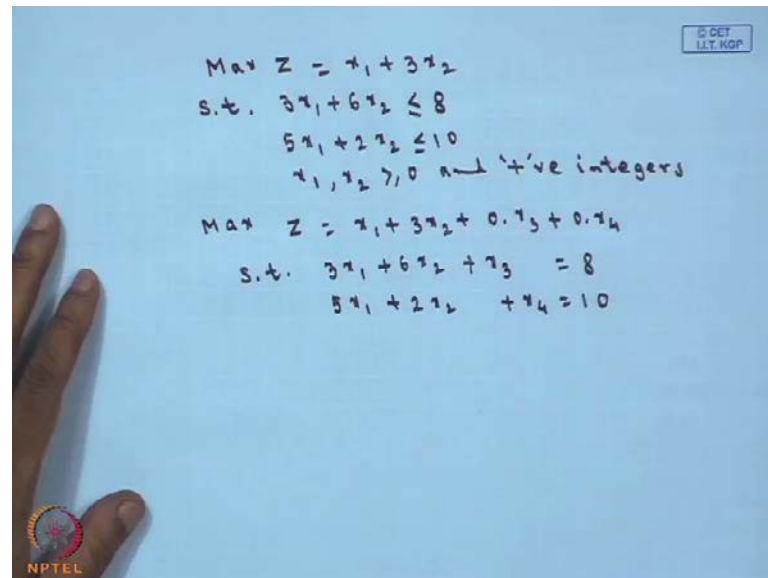 © CET
I.I.T. KGP
Max Z = x₁ + 3x₂
s.t. 3x₁ + 6x₂ ≤ 8
5x₁ + 2x₂ ≤ 10
x₁, x₂ ≥ 0 and '+'ve integers
Max Z = x₁ + 3x₂ + 0.x₃ + 0.x₄
s.t. 3x₁ + 6x₂ + x₃ = 8
5x₁ + 2x₂ + x₄ = 10
NPTEL